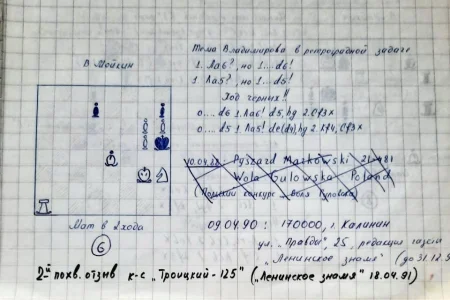 В Мойкин
Мат в 2 хода
6
Тема Владимирова в ретроградной задаче
1. Ла6?, но 1...d6!
1. Ла5?, но 1...d5!
Ход черных!!
0... d6 1. Ла6! d5, hg 2. Сf3x
0... d5 1. Ла5! de(d4), hg 2. Кf4, Сf3x
10.04.88 - Ryszard Markowski 21-481
Wola Gulowska Poland
09.04.90 : 170000, г. Калинин
ул. "Правды", 25, редакция газеты
"Ленинское знамя" (до 31.12.
2-й похв. отзыв к-с "Троицкий-125" ("Ленинское знамя" 18.04.91)